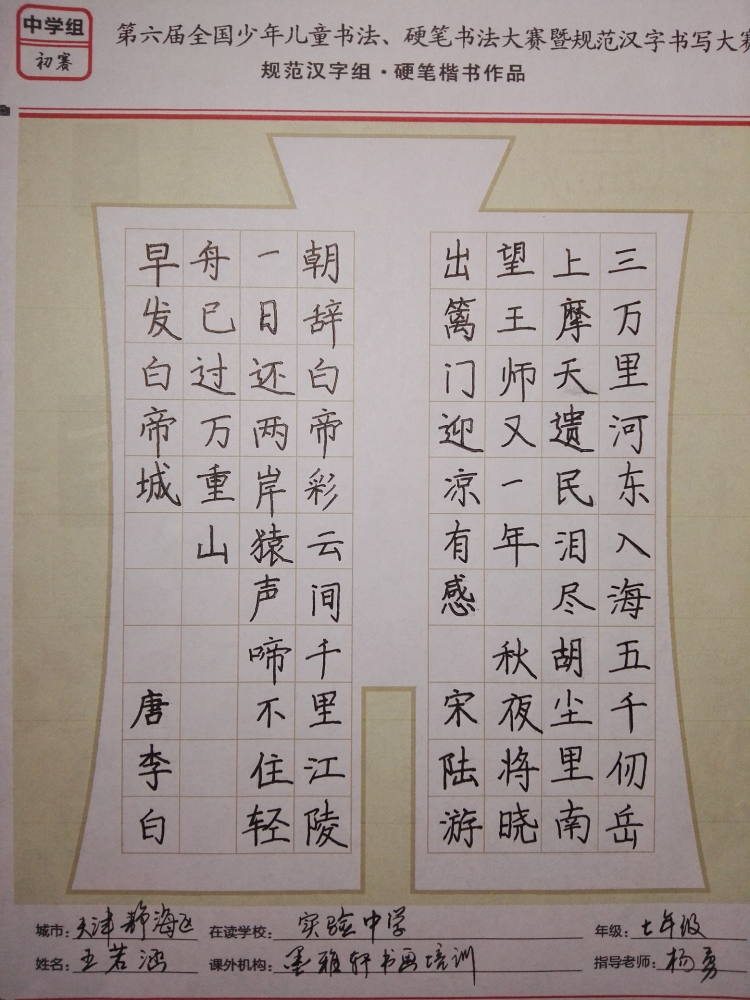 中学组
初赛
第六届全国少年儿童书法、硬笔书法大赛暨规范汉字书写大赛
规范汉字组·硬笔楷书作品
三万里河东入海五千仞岳
上摩天遗民泪尽胡尘里南
望王师又一年 秋夜将晓
出篱门迎凉有感 宋陆游
朝辞白帝彩云间千里江陵
一日还两岸猿声啼不住轻
舟已过万重山
早发白帝城 唐李白
城市：天津静海区 在读学校：实验中学 年级：七年级
姓名：王若涵 课外机构：墨雅轩书画培训 指导老师：杨勇